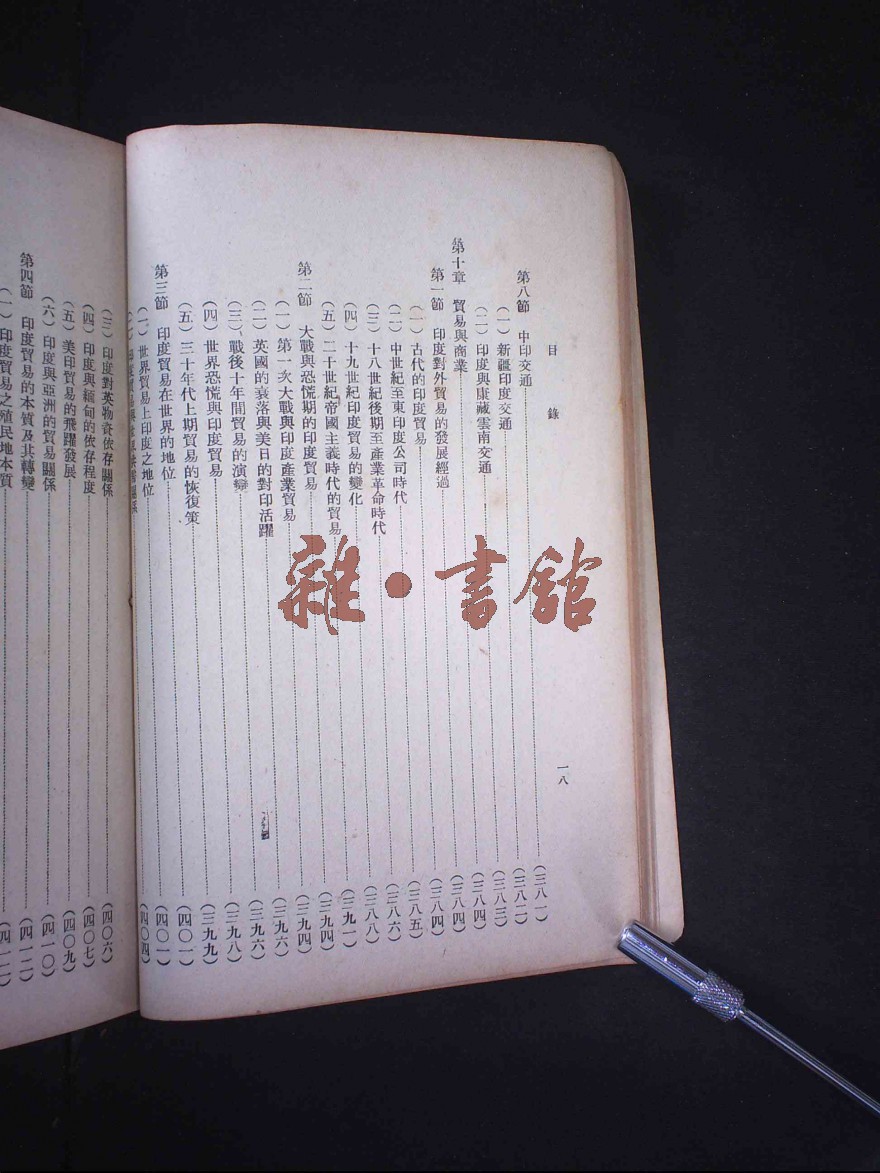 目錄
一八
第八節 中印交通(三八一)
(一)新疆印度交通(三八二)
(二)印度與康藏雲南交通(三八三)
第十章 貿易與商業(三八四)
第一節 印度對外貿易的發展經過(三八四)
(一)古代的印度貿易(三八四)
(二)中世紀至東印度公司時代(三八五)
(三)十八世紀後期至產業革命時代(三八六)
(四)十九世紀印度貿易的變化(三八八)
(五)二十世紀帝國主義時代的貿易(三九一)
第二節 大戰與恐慌期的印度貿易(三九四)
(一)第一次大戰與印度產業貿易(三九四)
(二)英國的衰落與美日的對印活躍(三九六)
(三)戰後十年間貿易的演變(三九六)
(四)世界恐慌與印度貿易(三九八)
(五)三十年代上期貿易的恢復策(三九九)
第三節 印度貿易在世界的地位(四〇一)
(一)世界貿易上印度之地位(四〇一)
(四〇四)
(三)印度對英物資依存關係(四〇六)
(四)印度與緬甸的依存程度(四〇七)
(五)美印貿易的飛躍發展(四〇九)
(六)印度與亞洲的貿易關係(四一〇)
第四節 印度貿易的本質及其轉變(四一二)
(一)印度貿易之殖民地本質(四一二)
雜·書館